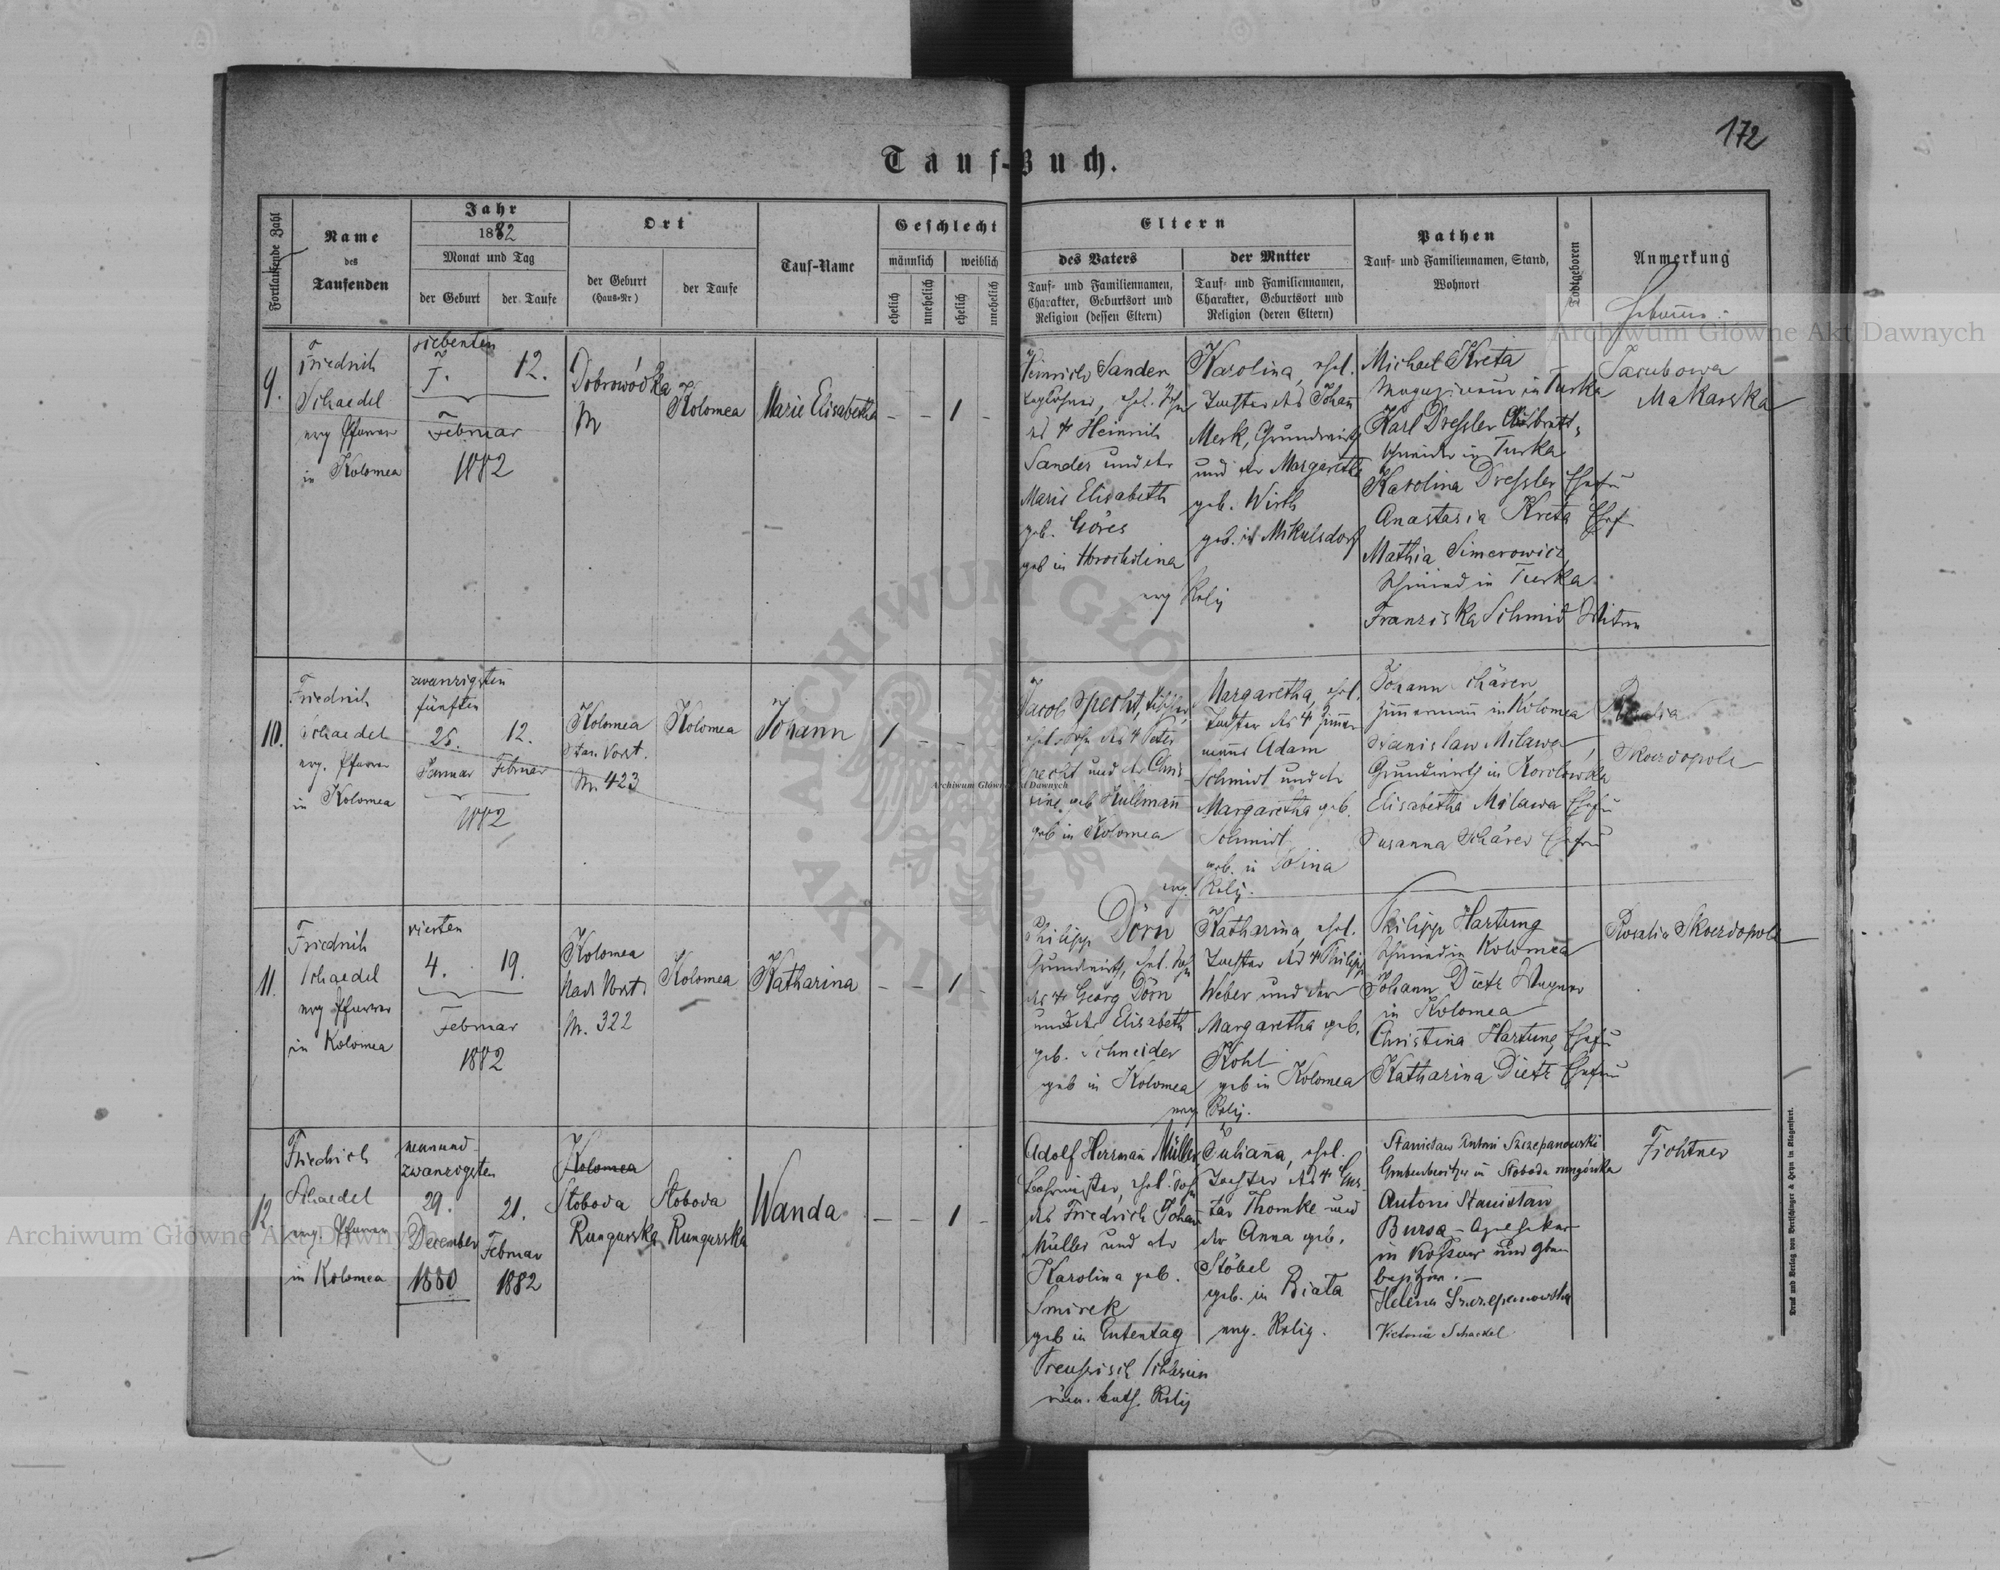 172
Tauf-Buch.
Fortlaufende Zahl
Name
des
Taufenden
Jahr
1882
Monat und Tag
der Geburt
der Taufe
Ort
der Geburt
(Haus-Nr)
der Taufe
Tauf-Name
Geschlecht
männlich
weiblich
ehelich
unehelich
ehelich
unehelich
Eltern
des Vaters
Tauf- und Familiennamen,
Charakter, Geburtsort und
Religion (dessen Eltern)
der Mutter
Tauf- und Familiennamen,
Charakter, Geburtsort und
Religion (deren Eltern)
Pathen
Tauf- und Familiennamen, Stand,
Wohnort
Todtgeboren
Anmerkung
9.
Friedrich
Schaedel
evg Pfarrer
in Kolomea
siebenten
7.
12.
Februar
1882
Dobrowódka
Nr
Kolomea
Marie Elisabetha
- - 1 -
Heinrich Sander
Taglöhner, ehel. Sohn
des † Heinrich
Sander und der
Marie Elisabeth
geb. Göres
geb in
Karolina, ehel.
Tochter des Johann
Merk, Grundwirth
und der Margaretha
geb. Wirth
geb. in Mikulsdorf
evg Relig
Michael Kreta
Magazineur in Turka
Karl Dressler
in Turka
Karolina Dressler Ehefrau
Anastasia Kreta Ehef
Mathia Simerowicz
Schmied in Turka
Franziska Schmid Witwe
Jacubowa
Makarska
10.
Friedrich
Schaedel
evg. Pfarrer
in Kolomea
zwanzigsten
fünften
25.
12.
Januar
Februar
1882
Kolomea
Stan. Vorst.
Nr. 423
Kolomea
Johann
1 - - -
Jacob Specht,
ehel. Sohn des † Peter
Specht und der Chris
tine geb Kullmann
geb in Kolomea
Margaretha, ehel.
Tochter des † Zimmer
manns Adam
Schmidt und der
Margaretha geb.
Schmidt
geb. in Dolina
evg. Relig.
Johann Schärer
Zimmermann in Kolomea
Stanislaw Milawa
Grundwirth in Korolówka
Elisabetha Milawa Ehefrau
Susanna Schärer Ehefrau
Rosalia
Skoerdopole
11.
Friedrich
Schaedel
evg Pfarrer
in Kolomea
vierten
4.
19.
Februar
1882
Kolomea
Nad. Vorst.
Nr. 322
Kolomea
Katharina
- - 1 -
Philipp Dörn
Grundwirth, ehel. Sohn
des † Georg Dörn
und der Elisabeth
geb. Schneider
geb in Kolomea
Katharina, ehel.
Tochter des † Philipp
Weber und der
Margaretha geb.
Kohl
geb in Kolomea
evg. Relig.
Philipp Hartung
Schmied in Kolomea
Johann Dietz Wagner
in Kolomea
Christina Hartung Ehefrau
Katharina Dietz Ehefrau
Rosalia Skoerdopole
12
Friedrich
Schaedel
evg. Pfarrer
in Kolomea
neunund
zwanzigsten
29.
December
1880
21.
Februar
1882
Kolomea
Sloboda
Rungurska
Sloboda
Rungurska
Wanda
- - 1 -
Adolf Herrman Müller
Bohrmeister, ehel. Sohn
des Friedrich Johan
Müller und der
Karolina geb.
Smirek
geb in Gutentag
Preussisch Schlesien
röm. kath. Relig
Juliana, ehel.
Tochter des † Gus
tav Thomke und
der Anna geb.
Stöbel
geb. in Biała
evg. Relig.
Stanislaw Antoni Szczepanowski
Grubenbesitzer in Sloboda rungórska
Antoni Stanislaw
Bursa - Apotheker
in Kossow und
besitzer. -
Helena Szczepanowska
Victoria Schaedel
Fichtner
Druck und Verlag von Bertschinger & Heyn in Klagenfurt.
Archiwum Główne Akt Dawnych
Archiwum Główne Akt Dawnych
Archiwum Główne Akt Dawnych